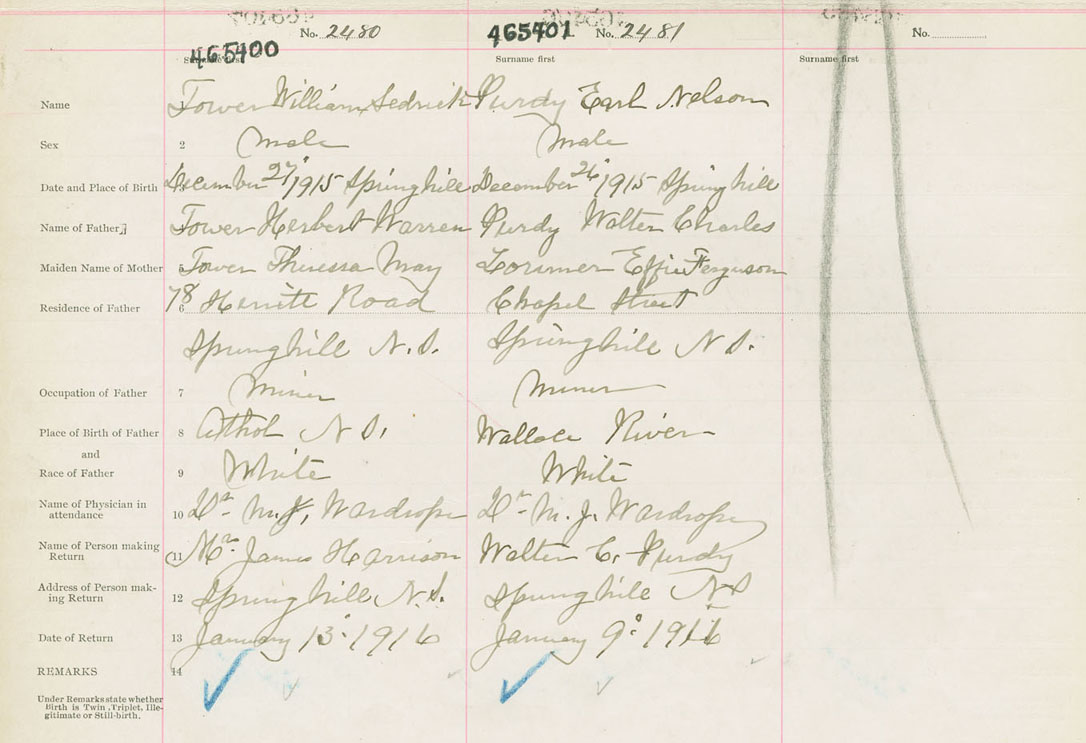 No. 2480
465400
Surname first
465401
No. 2481
Surname first
No.
Surname first
Name
Tower William Sedrick
Purdy Earl Nelson
Sex
2
Male
Male
Date and Place of Birth
December 27° 1915 Springhill
December 26° 1915 Springhill
Name of Father
Tower Herbert Warren
Purdy Walter Charles
Maiden Name of Mother
5
Tower Theressa May
Lorimer Effie Ferguson
Residence of Father
6
78 Herritt Road
Chapel Street
Springhill N.S.
Springhill N S.
Occupation of Father
7
Miner
Miner
Place of Birth of Father
8
Athol N S.
Wallace River
and
Race of Father
9
White
White
Name of Physician in
attendance
10
Dr. M. J. Wardrope
Dr. M. J. Wardrope
Name of Person making
Return
11
James Harrison
Walter C. Purdy
Address of Person mak-
ing Return
12
Springhill N.S.
Springhill NS
Date of Return
13
January 13° 1916
January 9° 1916
REMARKS
14
Under Remarks state whether
Birth is Twin, Triplet, Ille-
gitimate or Still-birth.